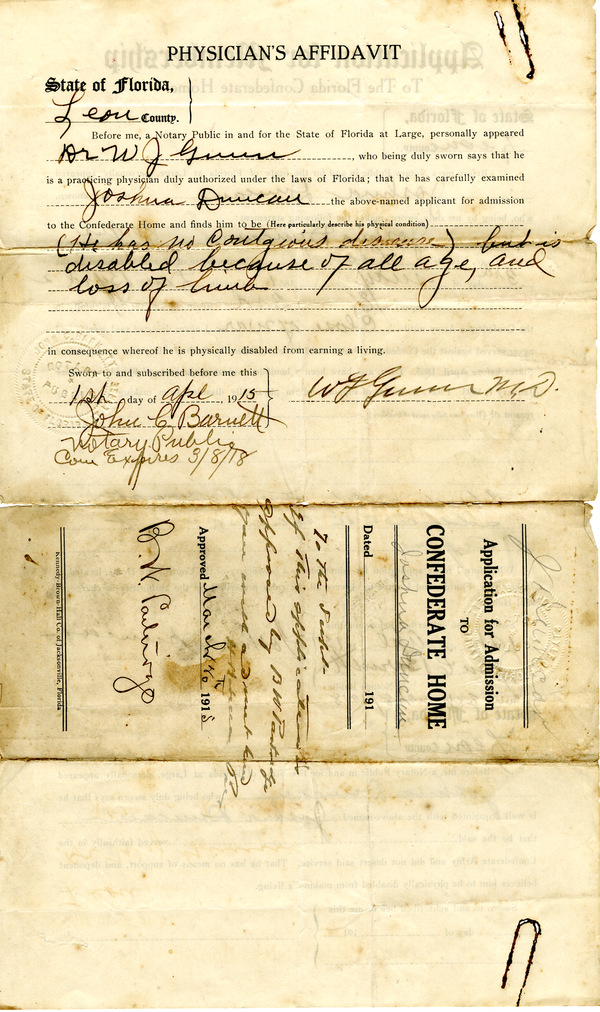 PHYSICIAN'S AFFIDAVIT
State of Florida,
Leon County.
Before me, a Notary Public in and for the State of Florida at Large, personally appeared
Dr W J Gunn, who being duly sworn says that he
is a practicing physician duly authorized under the laws of Florida; that he has carefully examined
Joshua Duncan the above-named applicant for admission
to the Confederate Home and finds him to be (Here particularly describe his physical condition)
(He has no Contgious disease) but is
disabled because of all age, and
loss of limb
in consequence whereof he is physically disabled from earning a living.
Sworn to and subscribed before me this
1st day of Apl, 1915
W J Gunn M.D.
John C Barnett
Notary Public
Com Expires 3/8/18
Application for Admission
TO
CONFEDERATE HOME
Joshua Duncan
Dated 191
To the Supt.
If this application is
approved by B W Partridge
you will admit
Approved March 1915
B. W. Partridge
Kennedy-Brown-Hall Co. of Jacksonville, Florida